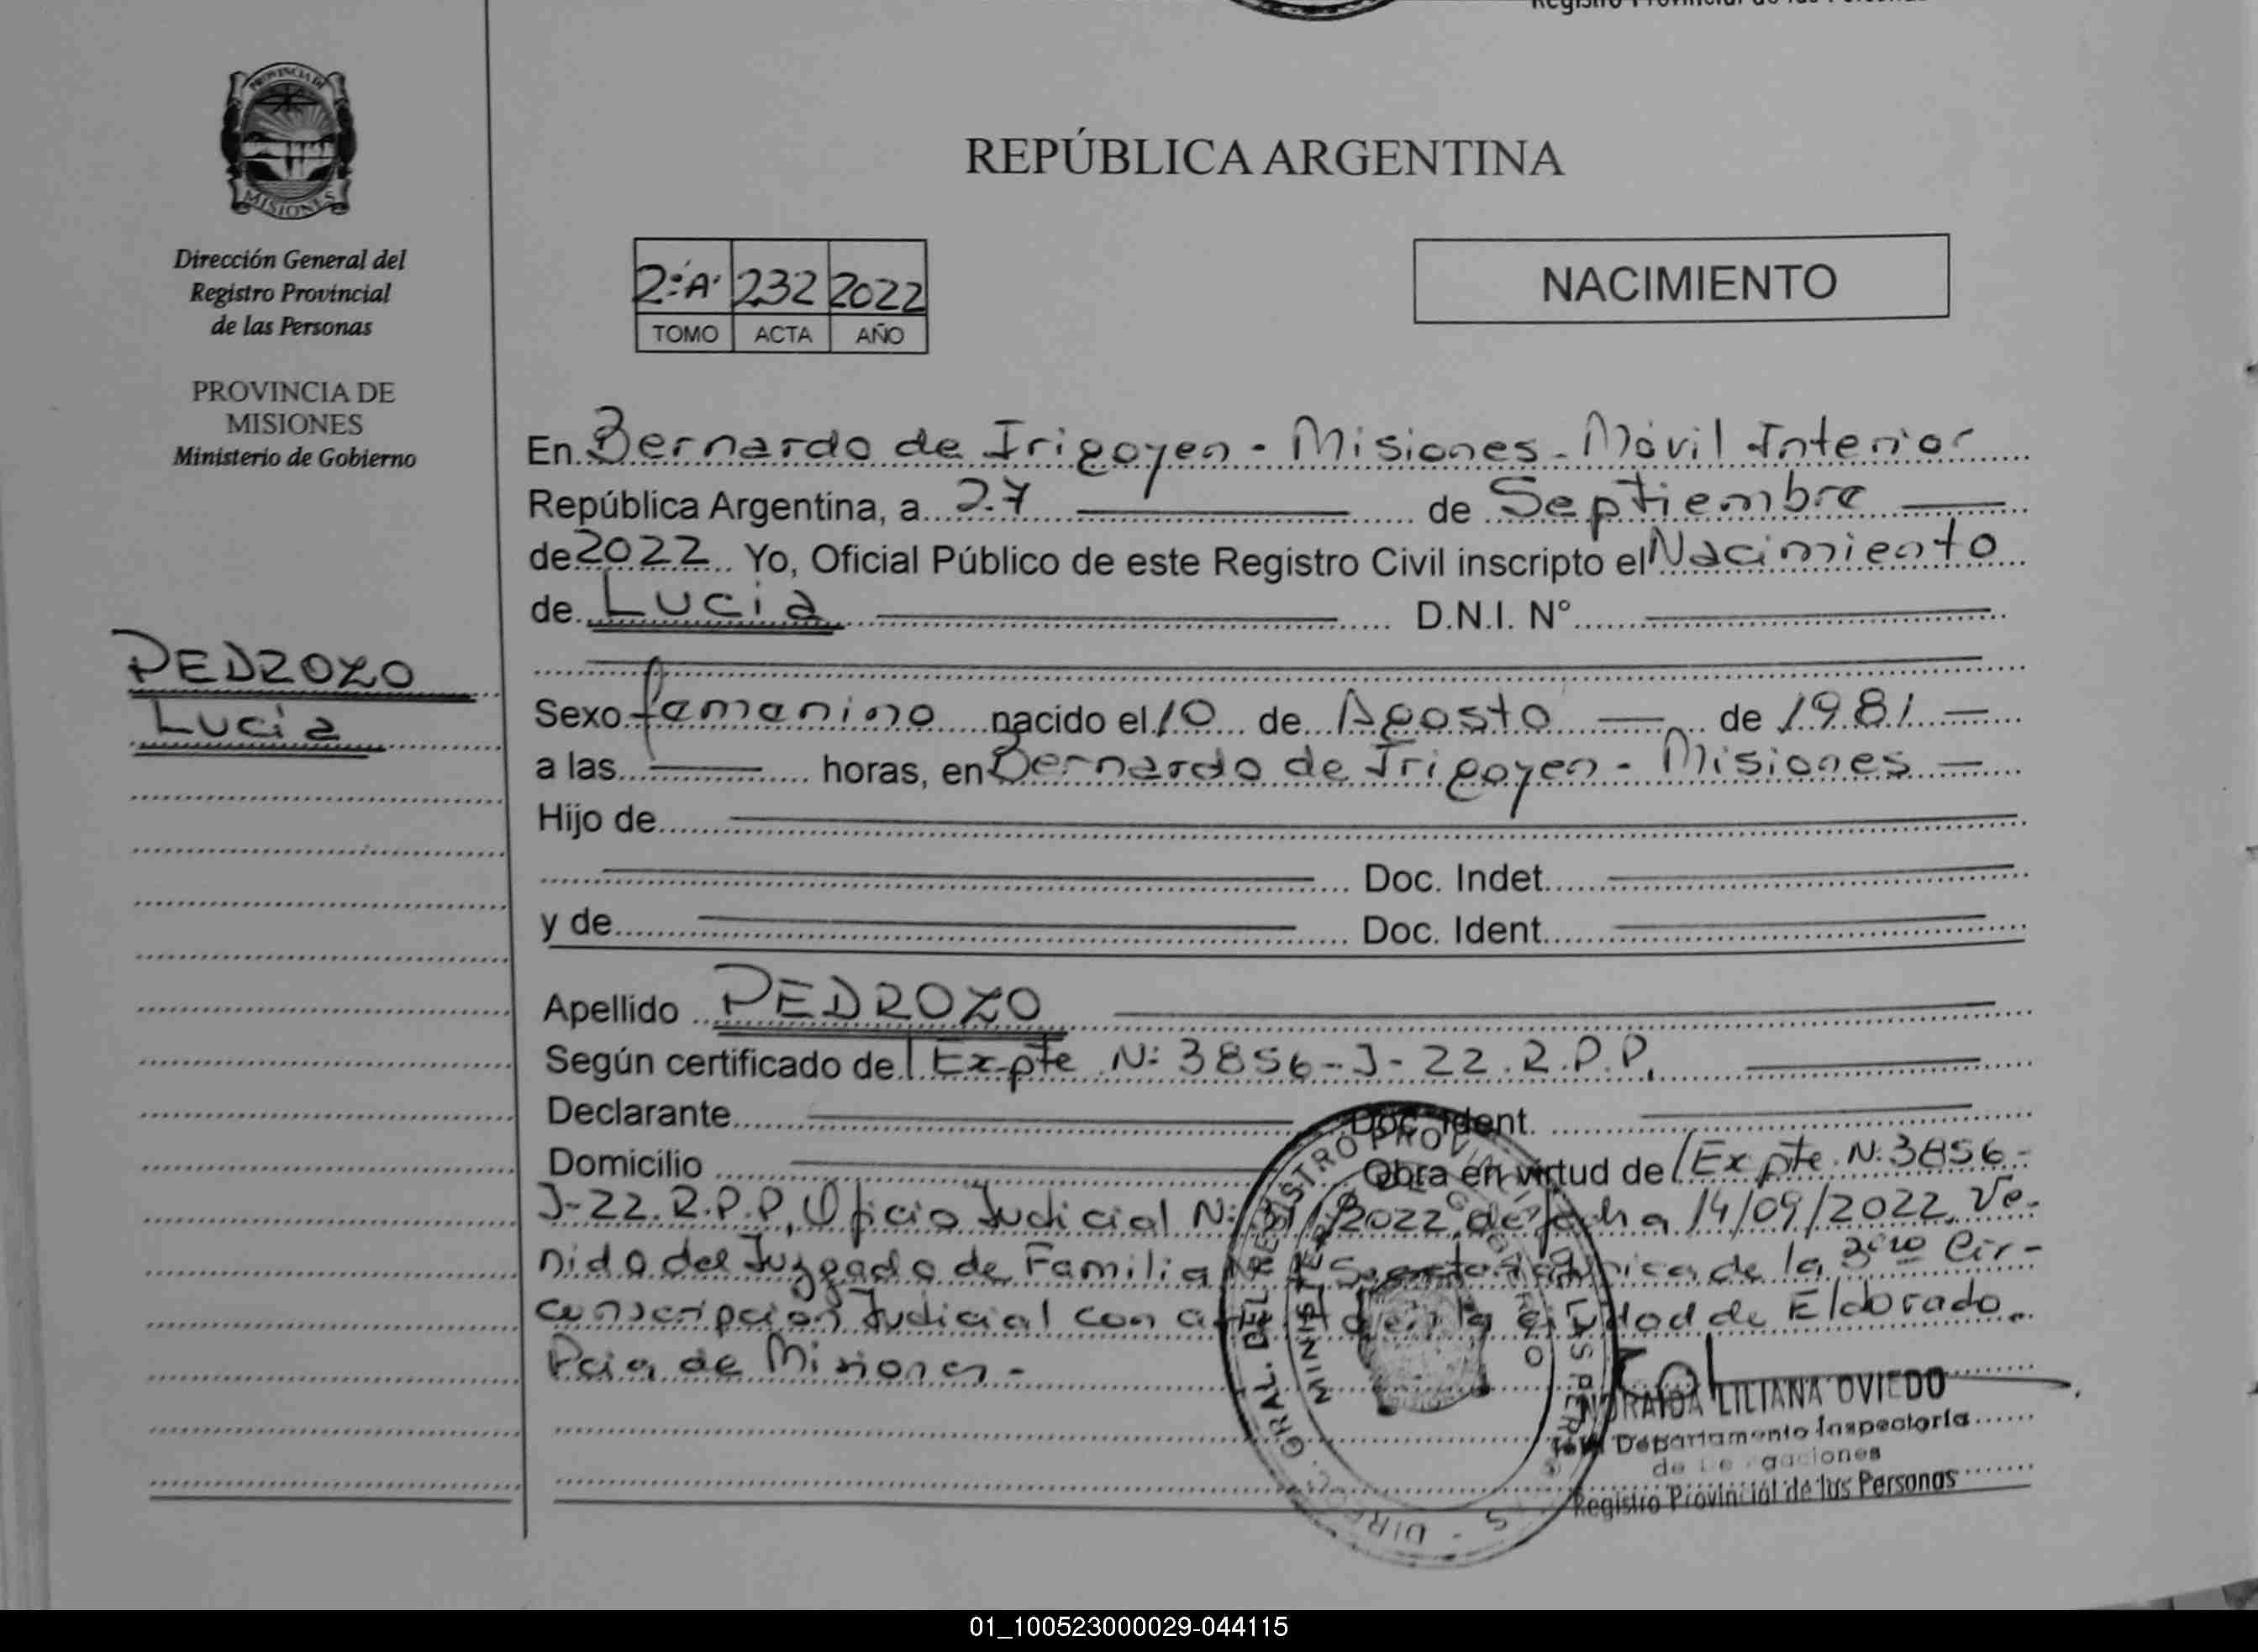 PROVINCIA DE
MISIONES
Dirección General del
Registro Provincial
de las Personas
PROVINCIA DE
MISIONES
Ministerio de Gobierno
PEDROZO
Lucia
REPÚBLICA ARGENTINA
2:'A' 232 2022
TOMO ACTA AÑO
NACIMIENTO
En Bernardo de Irigoyen - Misiones - Móvil Interior
República Argentina, a 27 de Septiembre
de 2022 Yo, Oficial Público de este Registro Civil inscripto el Nacimiento
de Lucia D.N.I. N°
Sexo femenino nacido el 10 de Agosto de 1981
a las horas, en Bernardo de Irigoyen - Misiones
Hijo de
Doc. Indet.
y de Doc. Ident.
Apellido PEDROZO
Según certificado de Expte N: 3856-J-22.R.P.P.
Declarante Doc. Ident.
Domicilio Obra en virtud de Expte. N: 3856-
J-22.R.P.P, Oficio Judicial N: /2022, de fecha 14/09/2022, Ve-
nido del Juzgado de Familia de la 3era Cir-
cunscripcion Judicial con en la ciudad de Eldorado
Pcia de Misiones -
DIREC. GRAL. DEL REGISTRO PROVINCIAL DE LAS PERSONAS
MINISTERIO DE GOBIERNO
NORAIDA LILIANA OVIEDO
Departamento Inspectoría
Registro Provincial de las Personas
01_100523000029-044115